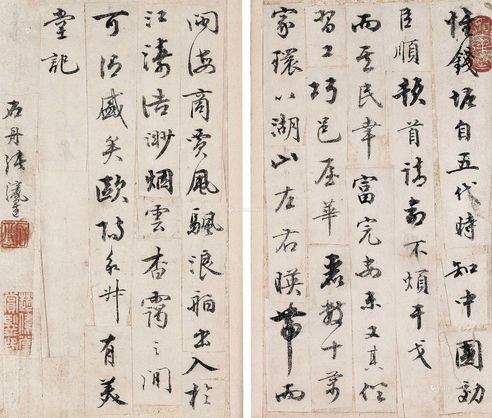 惟錢塘自五代時知中國効
臣順頓首請命不煩干戈
而其民幸富完安樂又其俗
習工巧邑屋華麗數十萬
家環以湖山左右暎帶而
閩海商賈風颿浪舶出入於
江濤浩渺烟雲杳靄之間
可謂盛矣歐陽永叔有美
堂記
石丹張